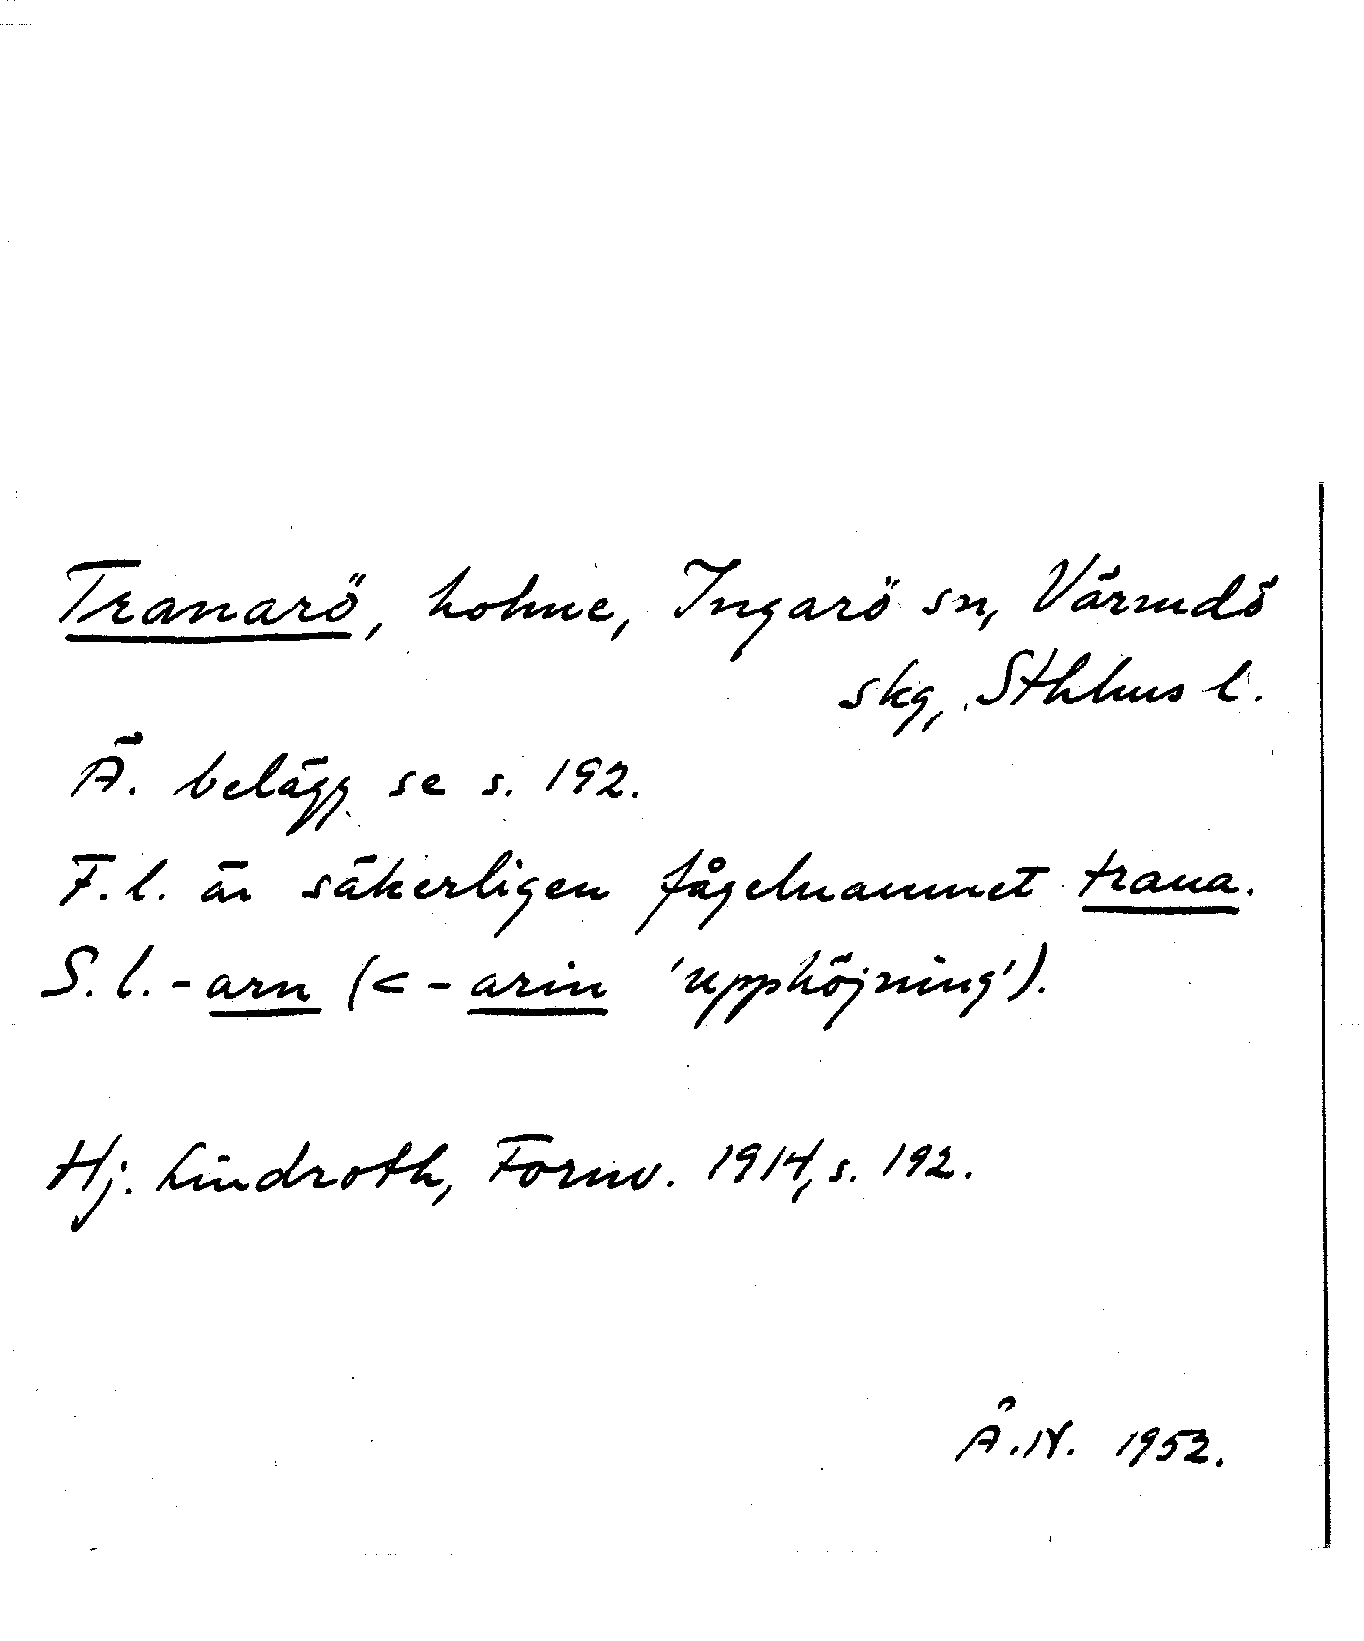 Tranarö, holme, Ingarö sn, Värmdö
skg, Sthlms l.
Ä. belägg se s. 192.
F.l. är säkerligen fågelnamnet trana.
S.l. -arn (< -arin 'upphöjning').
Hj. Lindroth, Fornv. 1914, s. 192.
Å.N. 1952.